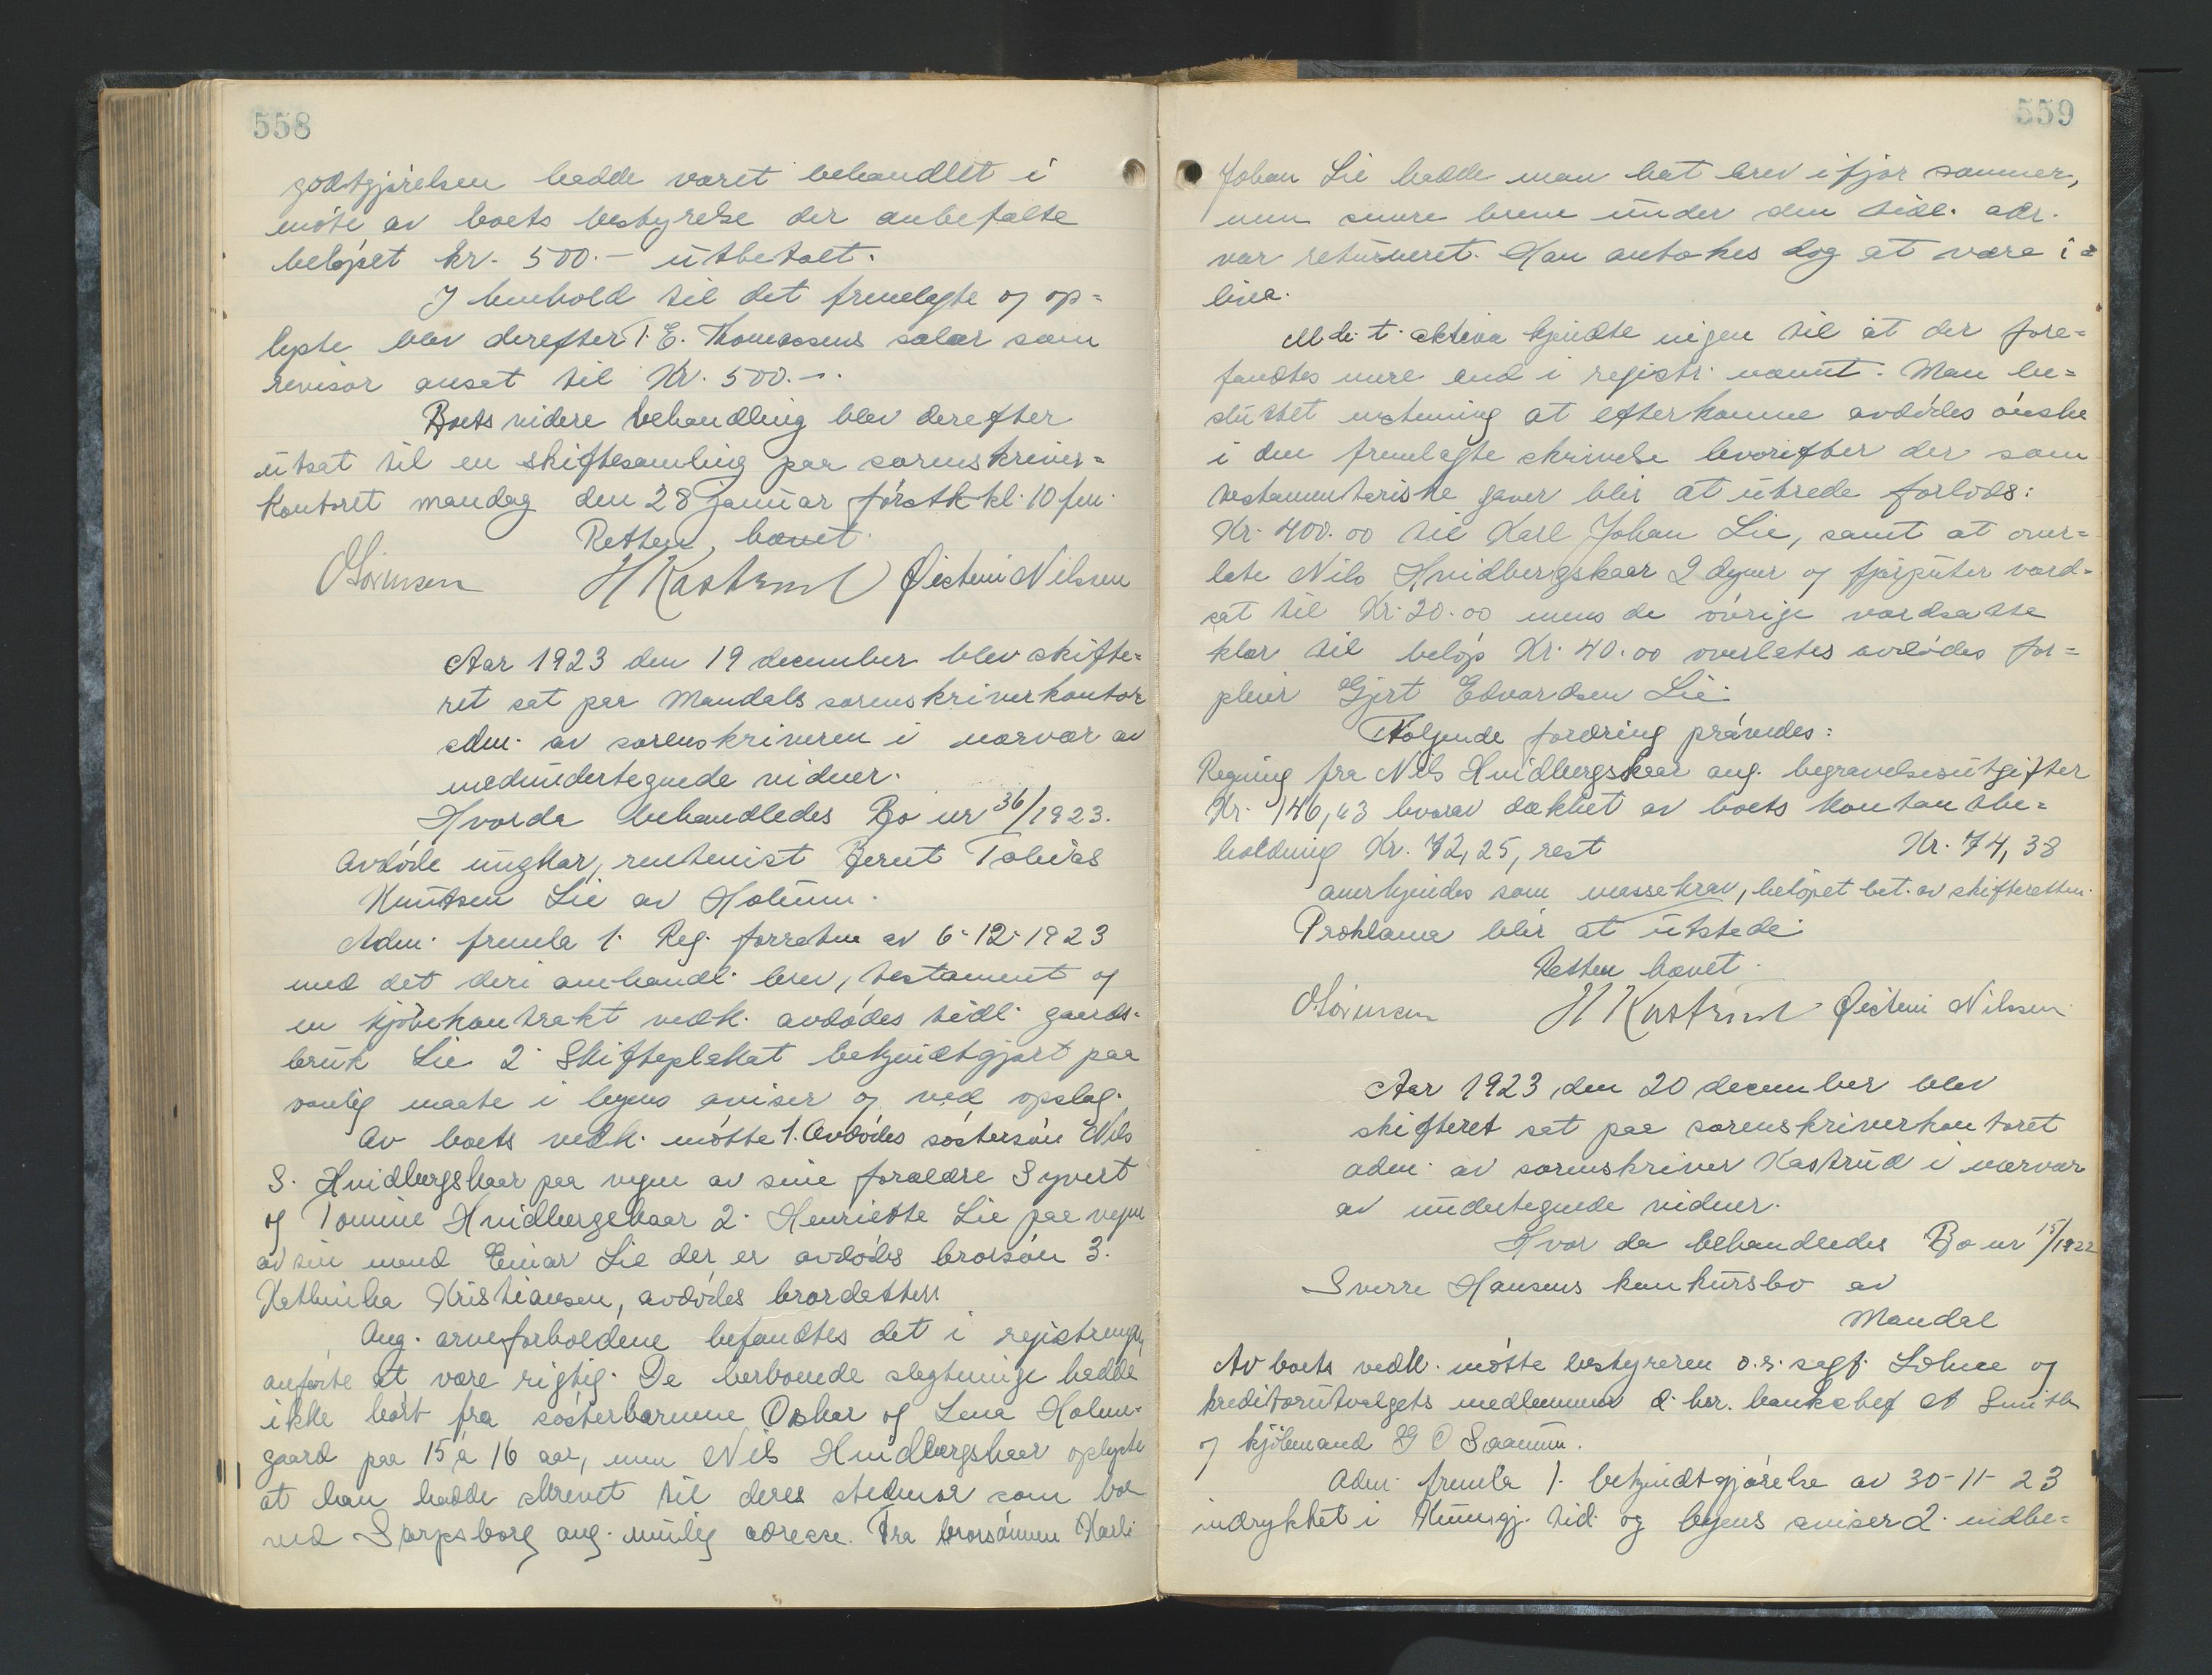 558
godtgjörelsen hadde været behandlet i
möte av boets bestyrelse der anbefalte
belöpet kr. 500.- utbetalt.
I henhold til det fremlagte og op=
lyste blev derefter T. E. Thomassens salær som
revisor ansat til Kr. 500.-.
Boets videre behandling blev derefter
utsat til en skiftesamling paa sorenskriver=
kontoret mandag den 28 januar förstk kl. 10 fm.
Retten hævet.
OSörensen HKastrud Öistein Nilsen
Aar 1923 den 19 december blev skifte=
ret sat paa Mandals sorenskriverkontor
adm. av sorenskriveren i nærvær av
medundertegnede vidner.
Hvorda behandledes Bo nr 36/1923.
Avdöde ungkar, rentenist Bernt Tobias
Knutsen Lie av Holum.
Adm. fremla 1. Reg. forretn av 6-12-1923
med det deri omhandl. brev, testament og
en kjöbekontrakt vedk. avdödes tidl. gaards-
bruk Lie 2. Skifteplakat bekjendtgjort paa
vanlig maate i byens aviser og ved opslag.
Av boets vedk. mötte 1. Avdödes söstersön Nils
S. Hvidbergskaar paa vegne av sine forældre Syvert
og Tomine Hvidbergskaar 2. Henriette Lie paa vegne
av sin mand Einar Lie der er avdödes brorsön 3.
Kathinka Kristiansen, avdödes brordatter.
Ang. arveforholdene befandtes det i registrering
anförte at være rigtig. De herboende slegtninge hadde
ikke hört fra sösterbarnene Oskar og Lena Holm-
gaard paa 15 à 16 aar, men Nils Hvidbergskaar oplyste
at han hadde skrevet til deres stedmor som bor
ved Sarpsborg ang. mulig adresse. Fra brorsönnen Karl
559
Johan Lie hadde man hat brev ifjor sommer,
men senere breve under den tidl. adr.
var returneret. Han antokes dog at være i
live.
M. h. t. aktiva kjendte ingen til at der fore=
fandtes mere end i registr. nævnt. Man be=
sluttet at efterkomme avdödes önske
i den fremlagte skrivelse hvorefter der som
testamentariske gaver blir at utrede forlods:
Kr. 400.00 til Karl Johan Lie, samt at over=
late Nils Hvidbergskaar 2 dyner og fjærputer værd-
sat til Kr. 20.00 mens de övrige værdsatte
klær til belöp Kr. 40.00 overlates avdödes for=
pleier Gjert Edvardsen Lie.
Fölgende fordring prövedes:
Regning fra Nils Hvidbergskaar ang. begravelsesutgifter
Kr. 146,63 hvorav dækket av boets kontantbe=
holdning Kr. 72,25, rest Kr. 74,38
anerkjendes som massekrav, belöpet bet. av skifteretten.
Proklama blir at utstede.
Retten hævet.
OSörensen H Kastrud Öistein Nilsen
Aar 1923 den 20 december blev
skifteret sat paa sorenskriverkontoret
adm. av sorenskriver Kastrud i nærvær
av undertegnede vidner.
Hvor da behandledes Bo nr 15/1922
Sverre Hansens konkursbo av
Mandal
Av boets vedk. mötte bestyreren o.r. sagf. Lohne og
kreditorutvalgets medlemmer d'hrr. banksjef A Smith
og kjöbmand G O Saanum.
Adm. fremla 1. bekjendtgjörelse av 30-11-23
indrykket i Kunngj. tid. og byens aviser 2. indbe=